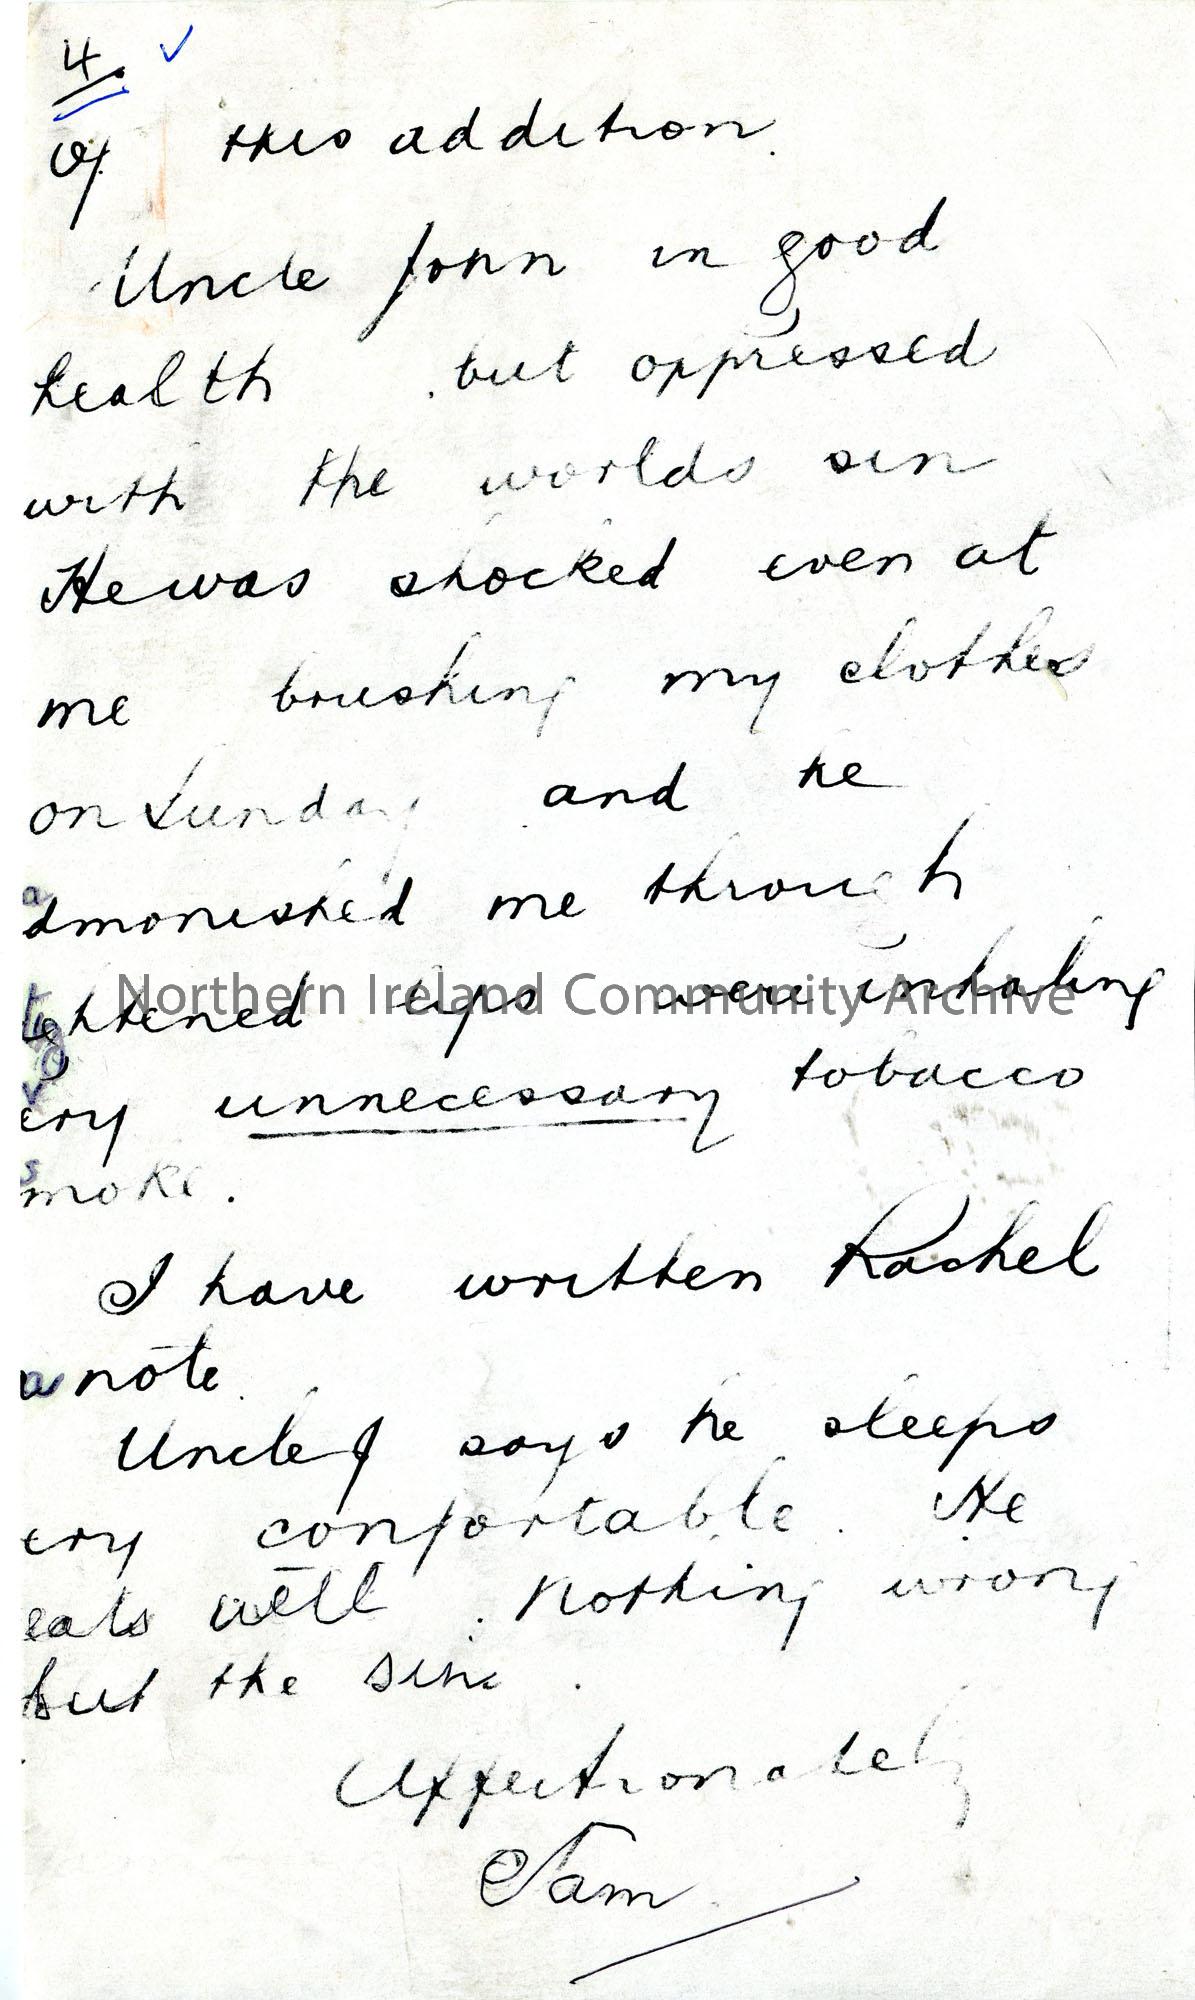 4.
of this addition.
Uncle John in good
health. but oppressed
with the worlds sin
He was shocked even at
me brushing my clothes
on Sunday and he
admonished me through
tightened lips were inhaling
Northern Ireland Community Archive
very unnecessary tobacco
smoke.
I have written Rachel
a note.
Uncle J says he sleeps
ery comfortable. He
eats well. Nothing wrong
but the sin.
Affectionately
Sam